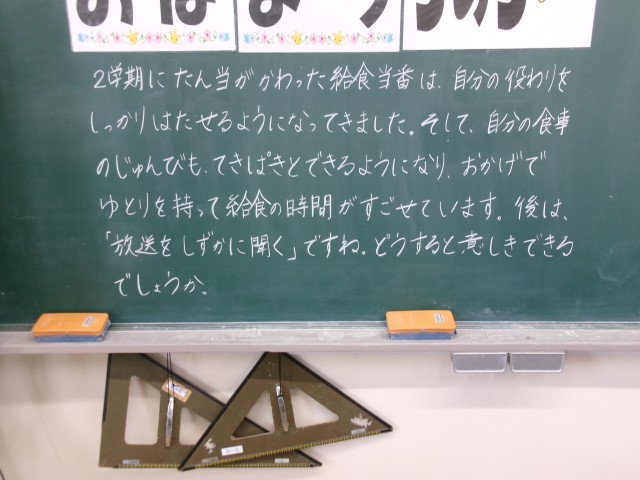 2学期にたん当がかわった給食当番は、自分の役わりを
しっかりはたせるようになってきました。そして、自分の食事
のじゅんびも、てきぱきとできるようになり、おかげで
ゆとりを持って給食の時間がすごせています。後は、
「放送をしずかに聞く」ですね。どうすると意しきできる
でしょうか。